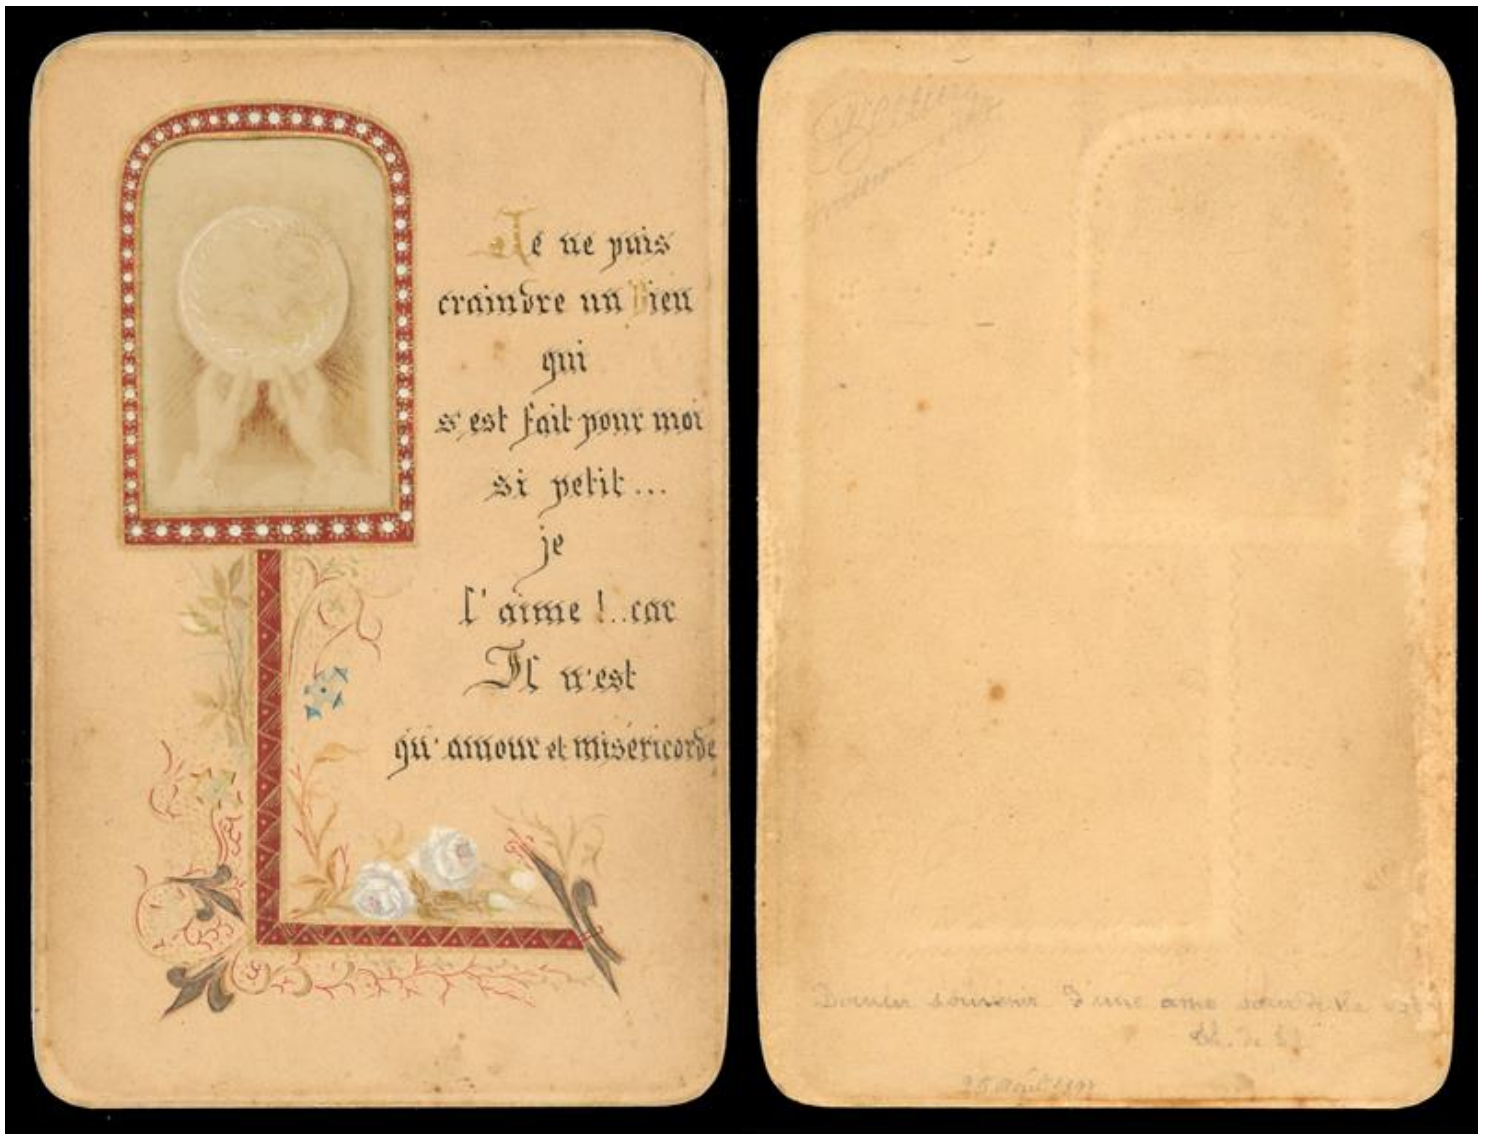 Je ne puis
craindre un Dieu
qui
s'est fait pour moi
si petit...
je
l'aime !..car
Il n'est
qu'amour et miséricorde
Dernier souvenir d'une âme sœur de la
Th. de
25 Août 1897